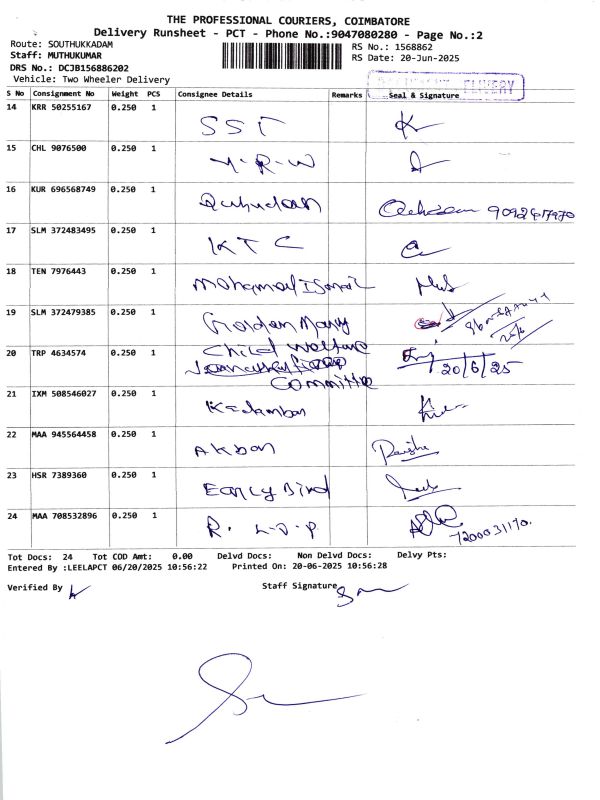 THE PROFESSIONAL COURIERS, COIMBATORE
Delivery Runsheet - PCT - Phone No.:9047080280 - Page No.:2
Route: SOUTHUKKADAM
RS No.: 1568862
Staff: MUTHUKUMAR
RS Date: 20-Jun-2025
DRS No.: DCJB156886202
Vehicle: Two Wheeler Delivery
S No Consignment No Weight PCS Consignee Details Remarks Seal & Signature
14 KRR 50255167 0.250 1 SST
15 CHL 9076500 0.250 1 Y.R.W
16 KUR 696568749 0.250 1
17 SLM 372483495 0.250 1 KTC
18 TEN 7976443 0.250 1 Mohamed Ismail
19 SLM 372479385 0.250 1 Golden Mary
20 TRP 4634574 0.250 1 Child Welfare
Committe 20/6/25
21 IXM 508546027 0.250 1 Kadamban
22 MAA 945564458 0.250 1 Akbar
23 HSR 7389360 0.250 1 Early Bird
24 MAA 708532896 0.250 1 R. L.D.P 7200031170.
Tot Docs: 24 Tot COD Amt: 0.00 Delvd Docs: Non Delvd Docs: Delvy Pts:
Entered By :LEELAPCT 06/20/2025 10:56:22 Printed On: 20-06-2025 10:56:28
Verified By
Staff Signature